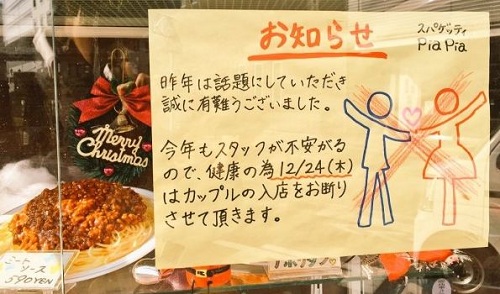 お知らせ
スパゲッティ
PiaPia
昨年は話題にしていただき
誠に有難うございました。
今年もスタッフが不安がる
ので、健康の為12/24(木)
はカップルの入店をお断り
させて頂きます。
Merry
Christmas
ミート
ソース
590YEN